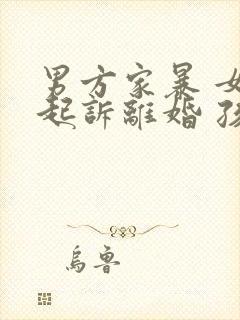 男方家暴 女
起訴離婚 孩
烏魯